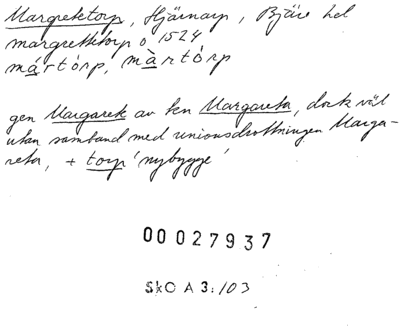 Margretetorp, Hjärnarp, Bjäre hd
margrettetorp o 1524
mártórp, màrtórp
gen Margarete av kvn Margareta, dock väl
utan samband med unionsdrottningen Marga-
reta, + torp 'nybygge'
00027937
SkO A 3:103